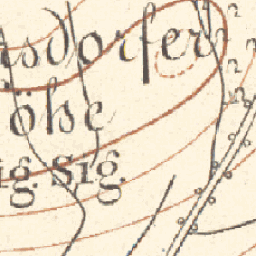 sdorfer
öhe
ig. Sig.